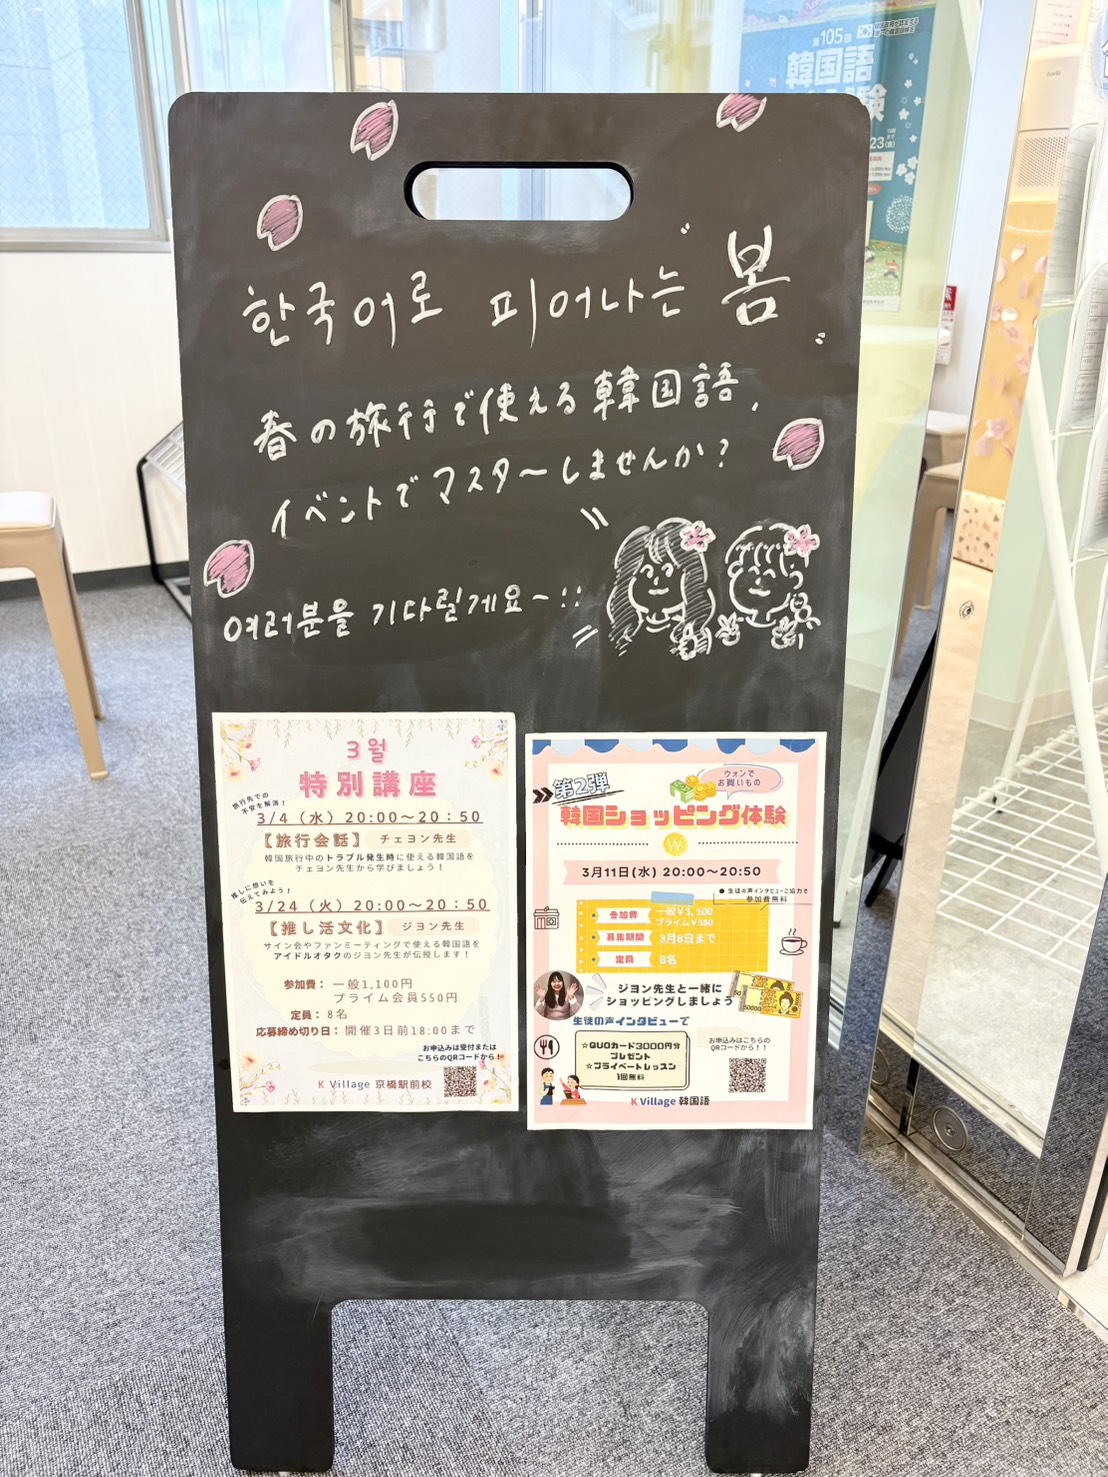 第105回
韓国語
한국어로 피어나는 봄
春の旅行で使える韓国語、
イベントでマスターしませんか?
여러분을 기다릴게요~!!
3월
特別講座
旅行先での
不安を解消!
3/4（水）20:00～20：50
【旅行会話】 チェヨン先生
韓国旅行中のトラブル発生時に使える韓国語を
チェヨン先生から学びましょう！
推しに想いを
伝えてみよう！
3/24（火）20:00～20：50
【推し活文化】 ジヨン先生
サイン会やファンミーティングで使える韓国語を
アイドルオタクのジヨン先生が伝授します！
参加費： 一般1,100円
プライム会員550円
定員： 8名
応募締め切り日：開催3日前18:00まで
お申込みは受付または
こちらのQRコードから！
K Village 京橋駅前校
第2弾
ウォンで
お買いもの
韓国ショッピング体験
W
3月11日(水) 20:00～20:50
● 生徒の声インタビューご協力で
参加費無料
参加費 一般￥1,100
プライム￥550
募集期間 3月8日まで
定員 8名
ジヨン先生と一緒に
ショッピングしましょう
50000
生徒の声インタビューで
☆QUOカード3000円分
プレゼント
☆プライベートレッスン
1回無料
お申込みはこちらの
QRコードから！！
K Village 韓国語